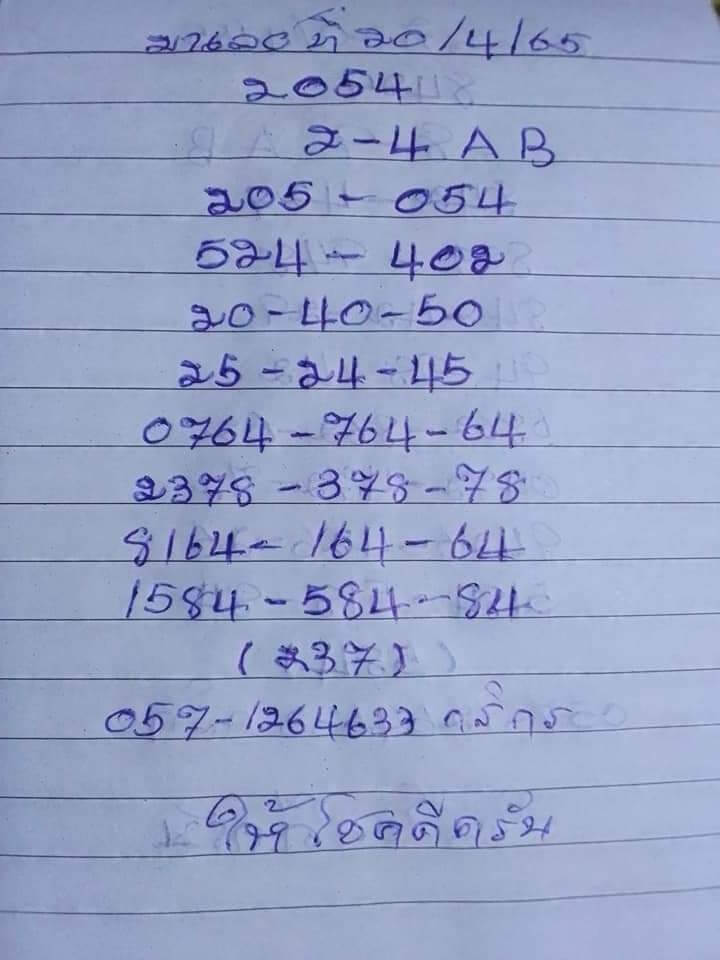 ที่ 20/4/65
2054
2-4 A B
205 - 054
524 - 402
20-40-50
25 - 24 - 45
0764 - 764 - 64
2378 - 378 - 78
8164 - 164 - 64
1584 - 584 - 84
(237)
057-1264633 กสิกร
ให้โชคดีครับ